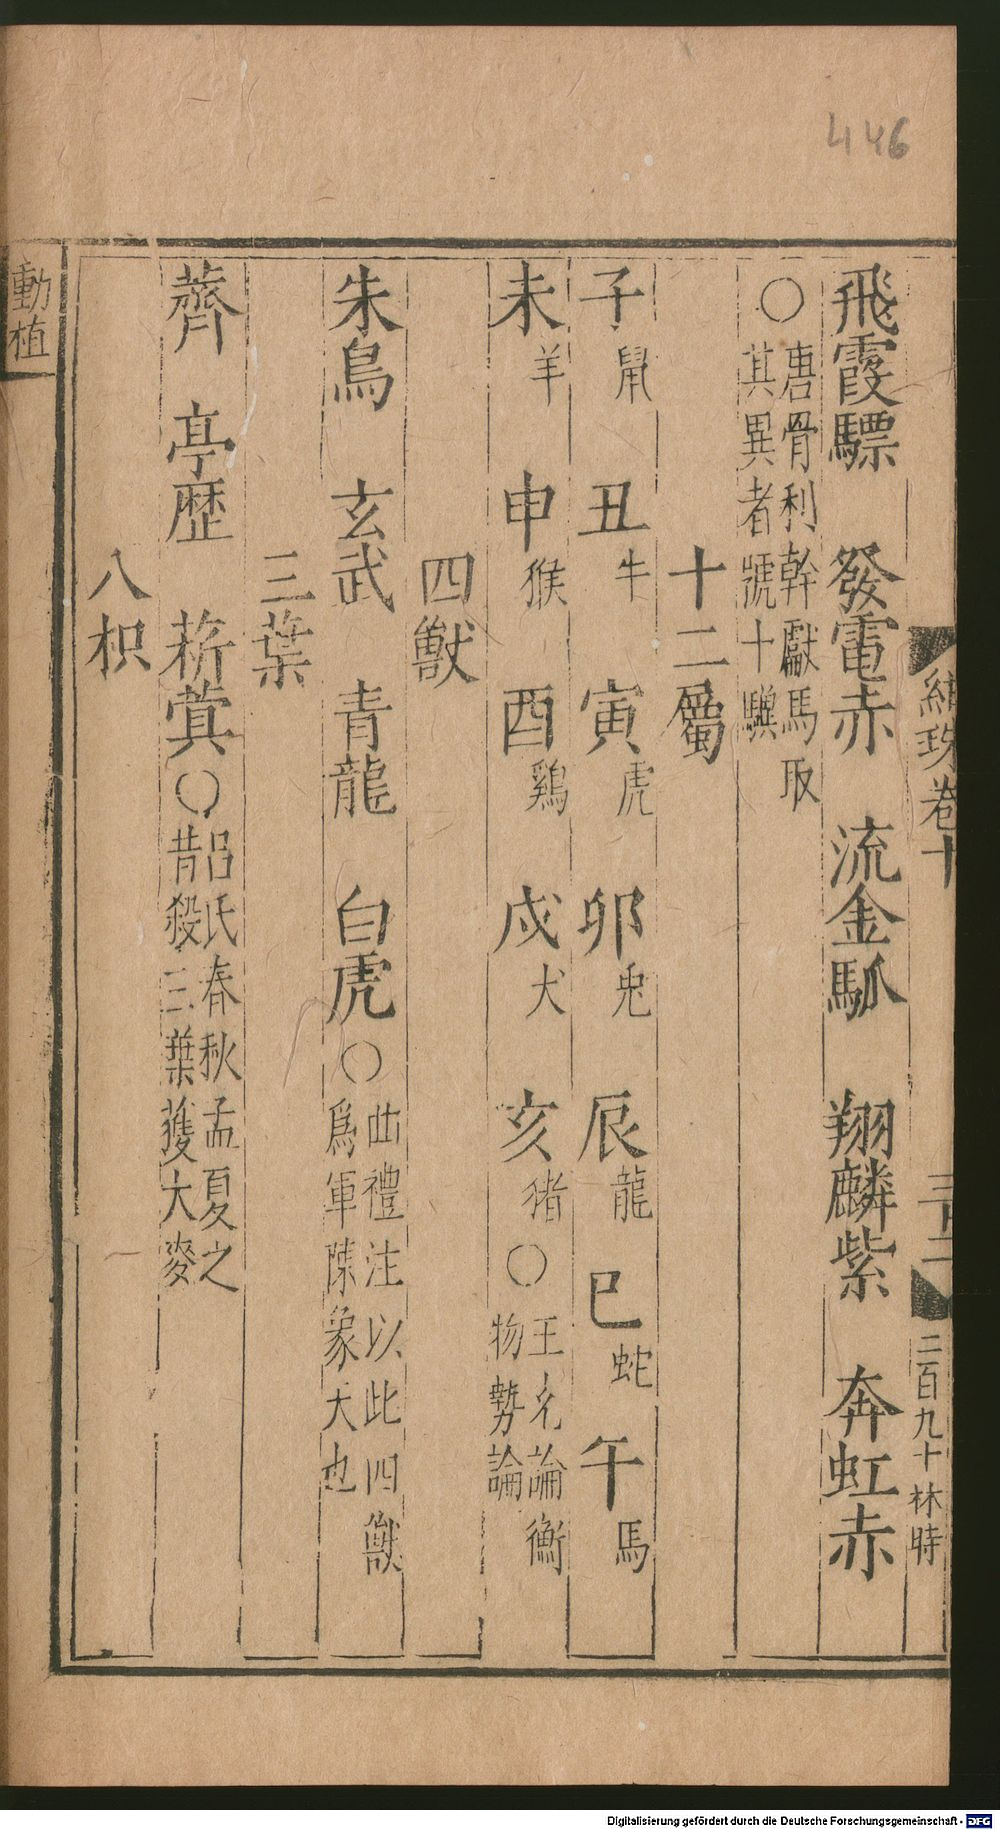 446
紺珠卷十
二百九十 林時
飛霞驃 發電赤 流金䯄 翔麟紫 奔虹赤
〇唐骨利幹獻馬取
其異者號十驥
十二屬
子鼠 丑牛 寅虎 卯兎 辰龍 巳蛇 午馬
未羊 申猴 酉鷄 戌犬 亥猪〇王充論衡
物勢論
四獸
朱鳥 玄武 青龍 白虎〇曲禮注以此四獸
爲軍陳象天也
三葉
薺 亭歴 菥蓂〇呂氏春秋孟夏之
昔殺三葉獲大麥
八枳
動植
Digitalisierung gefördert durch die Deutsche Forschungsgemeinschaft - DFG